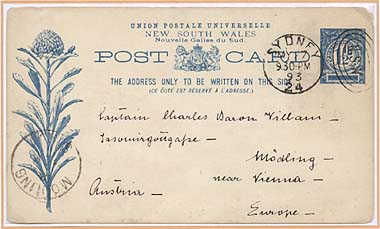 UNION POSTALE UNIVERSELLE
NEW SOUTH WALES
Nouvelle Galles du Sud.
POST CARD
THE ADDRESS ONLY TO BE WRITTEN ON THIS SIDE
(CE CÔTÉ EST RÉSERVÉ À L'ADRESSE.)
SYDNEY
9 30 PM
93
24
Captain Charles Baron
Mödling —
Austria —
near Vienna —
Europe —
MÖDLING